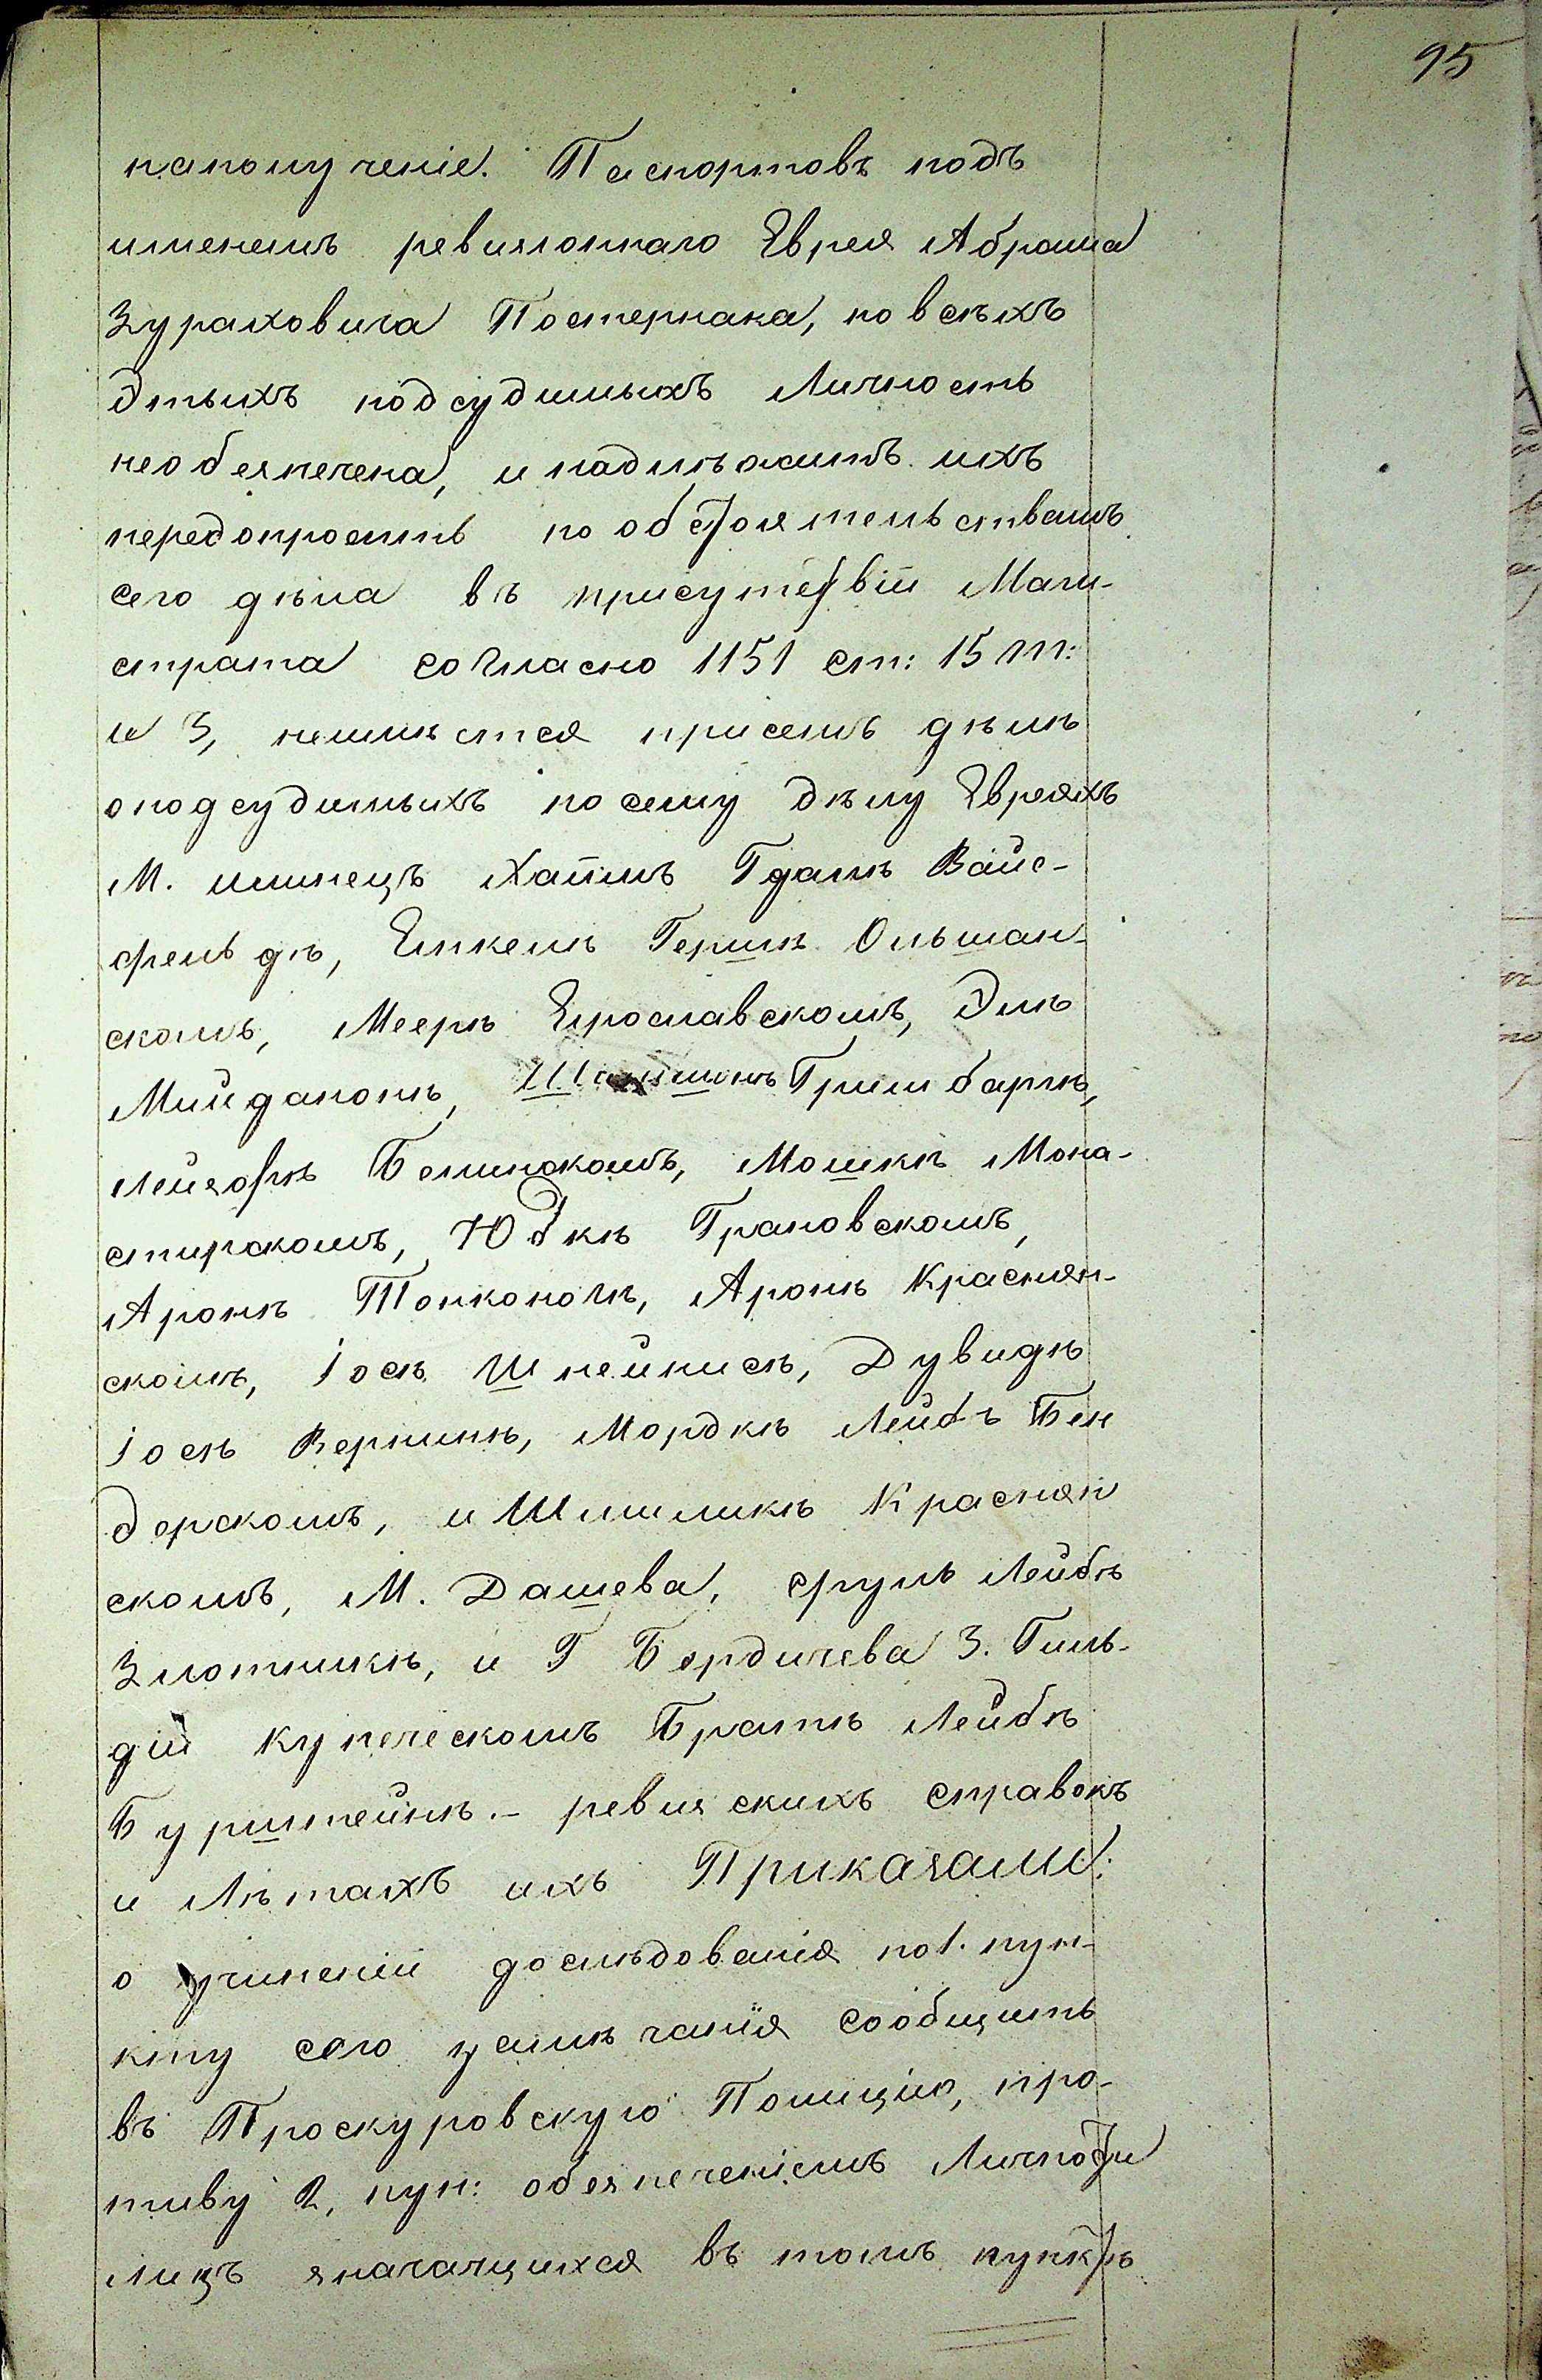 95
наполученіе. Паспортовъ подъ
именемъ ревизскаго Еврея Абрама
Зураховича Постернака, но всѣхъ
Этыхъ подсудимыхъ Личность
необезпечена, и надлѣжитъ ихъ
передопросить по обстоятельствамъ
сего дѣла въ присутствіи Маги-
страта согласно 1151 ст: 15 т:
и 3, неимѣется присемъ дѣлѣ
о подсудимыхъ посему дѣлу Евреяхъ
М. Хаимъ Гдалѣ Вайс-
фельдѣ, Янкелѣ Гершкѣ Ольшан-
скомъ, Меерѣ Ярославскомъ, Элѣ
Майданникѣ, Гринбаргѣ,
Лейзорѣ Белинскомъ, Мошкѣ Мона-
стирскомъ, Юдкѣ Грановскомъ,
Аронѣ Тонконогѣ, Аронѣ Краснян-
скомъ, Іосѣ Шнейнисѣ, Дувидѣ
Іосѣ Верникѣ, Мордкѣ Лейбѣ Бен
дерскомъ, и Шмиликѣ Краснян
скомъ, М. Дашева, Сруль Лейбѣ
Злотникѣ, и Г Бердичева 3. Гиль-
дій купеческомъ Братѣ Лейбѣ
Бурштейнѣ.- ревизскихъ справокъ
и Лѣтахъ ихъ Приказали:
о учиненіи дослѣдованія по 1. пун-
кту сего замѣчанія сообщить
въ Проскуровскую Полицію, про-
тиву 2, пун: обезпеченіемъ Личности
лицъ значащихся въ томъ пунктѣ